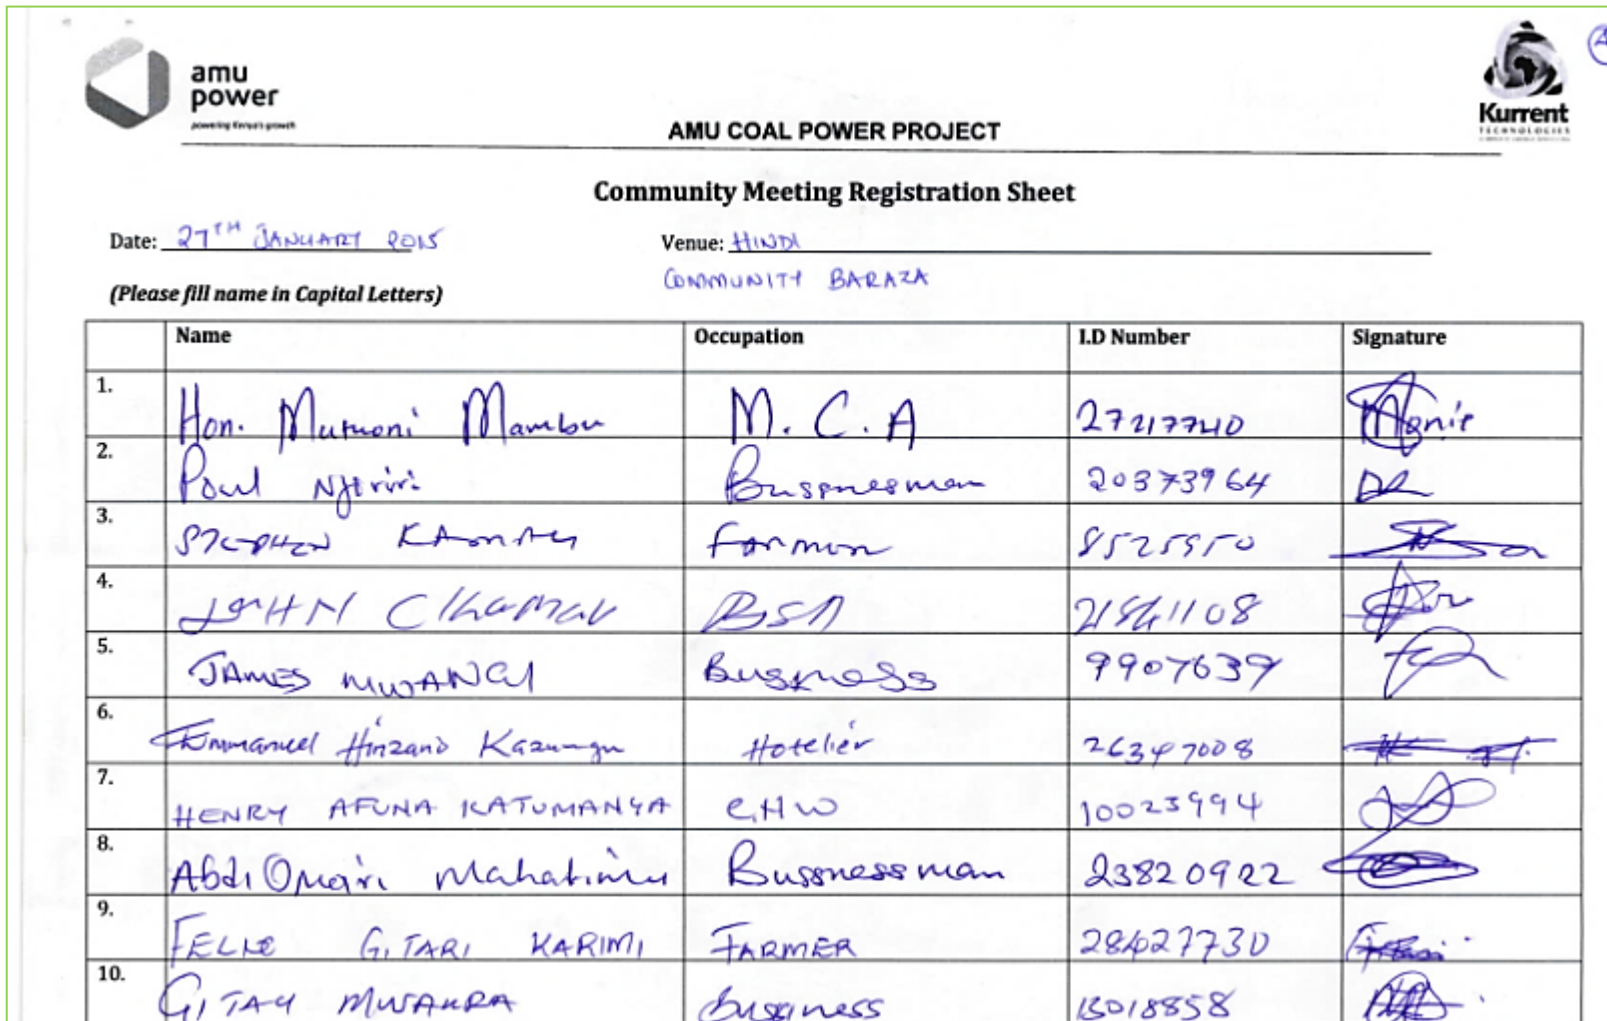 amu
power
powering Kenya's growth
Kurrent
TECHNOLOGIES
AMU COAL POWER PROJECT
Community Meeting Registration Sheet
Date: 27TH JANUARY 2015 Venue: HINDI
COMMUNITY BARAZA
(Please fill name in Capital Letters)
Name Occupation I.D Number Signature
1. Hon. Mumoni Mambu M. C. A 27217740
2. Paul Njeriri Bussnesman 20373964
3. STEPHEN KAMAU Farmer 8525950
4. JOHN BSN
5. JAMES MWANGI Business 9907639
6. Emmanuel Hinzano Kazungu Hotelier 26347008
7. HENRY AFUNA KATUMANYA CHW 10023994
8. Abdi Omari Mahatimu Bussnessman 23820922
9. GITARI KARIMI FARMER 28427730
10. Bussiness 13018858